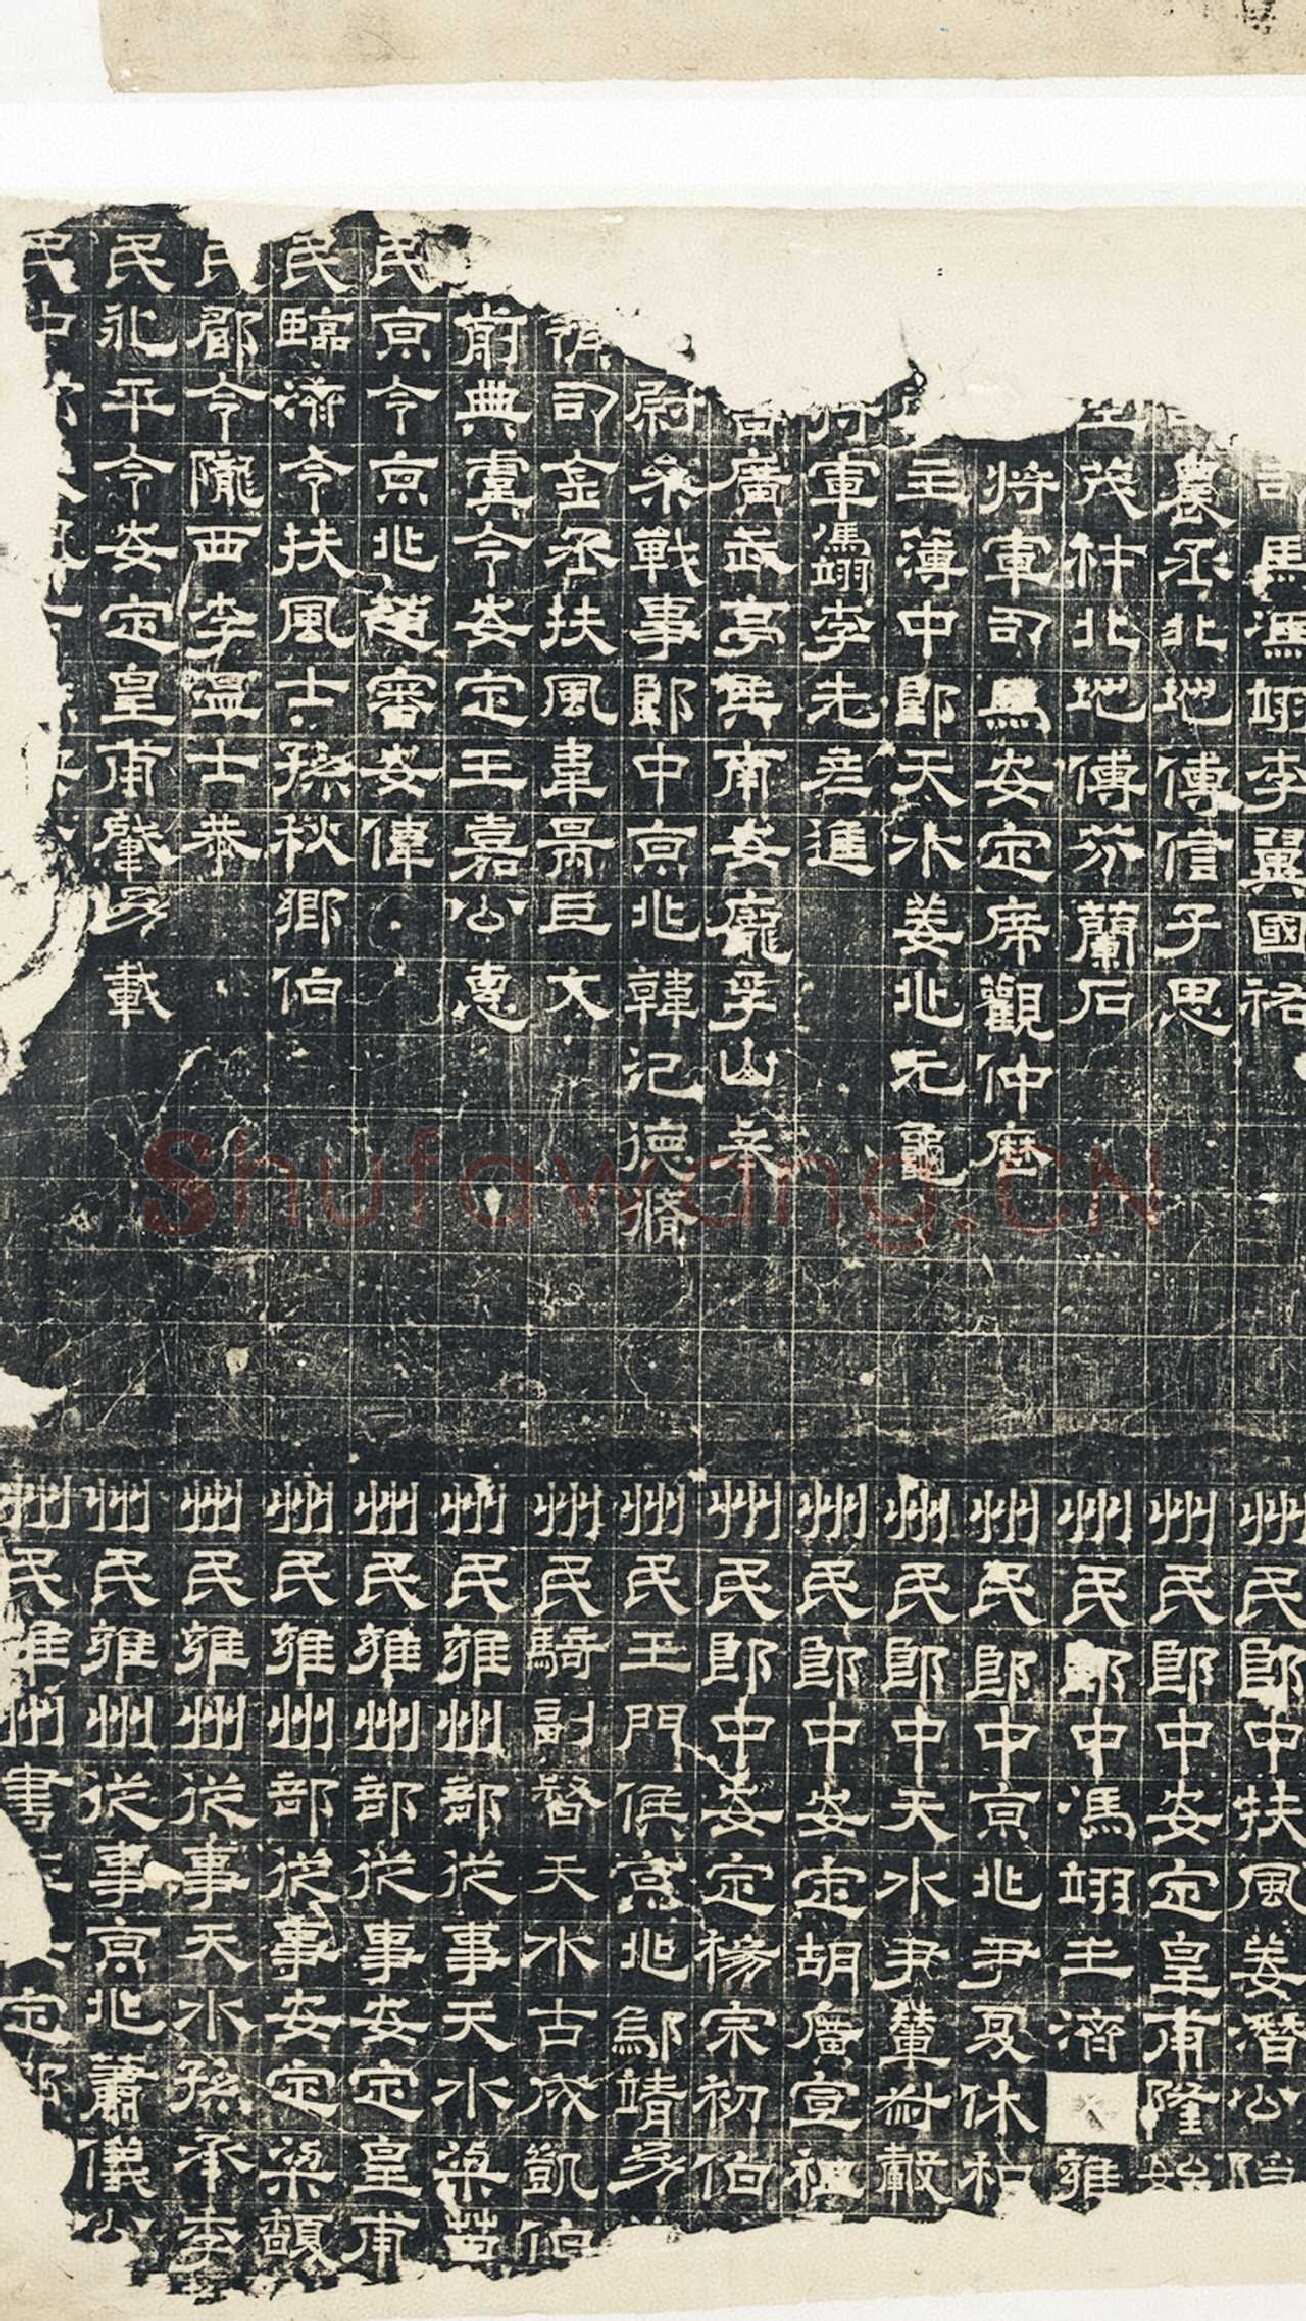 馬馮翊李翼國祐
農丞北地傅信子思
茂忖北地傅芬蘭石
將軍司馬安定席觀仲歷
主簿中郎天水姜兆元龜
軍馮翊李先彥進
廣武亭侯南安龐孚山奉
尉參戰事郎中京兆韓汜德脩
司金丞扶風韋昺巨文
前典虞令安定王嘉公惠
民京令京兆趙審安偉
民臨濟令扶風士孫秋鄉伯
民鄃令隴西李溫士恭
民永平令安定皇甫肇幼載
民中
州民郎中扶風姜潛公
州民郎中安定皇甫隆始
州民郎中馮翊王濟 雍
州民郎中京兆尹夏休和
州民郎中天水尹輦叔轂
州民郎中安定胡廣宣祖
州民郎中安定楊宗初伯
州民玉門侯京兆鄔靖幼
州民騎副督天水古成凱伯
州民雍州部從事天水梁苕
州民雍州部從事安定皇甫
州民雍州部從事安定梁馥
州民雍州從事天水孫承季
州民雍州從事京兆蕭儀公
州民雍州書 定
Shufawang.CN